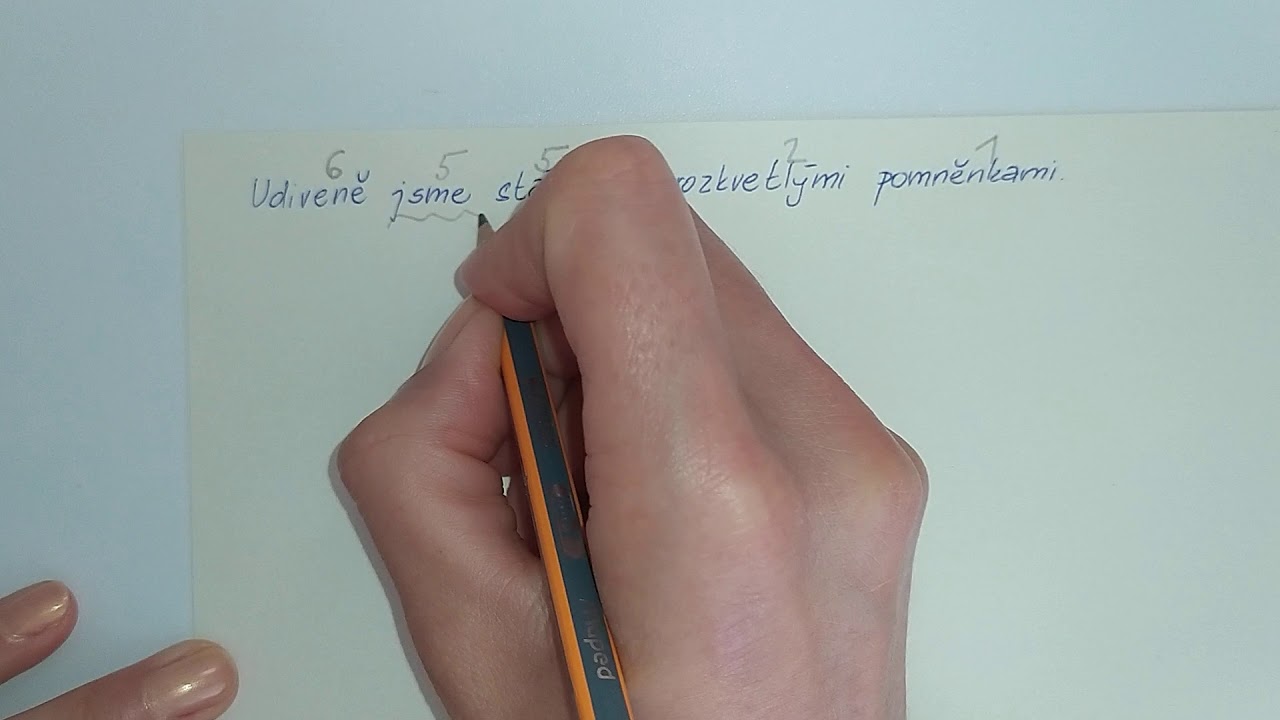 6 5 5 2 1
Udiveně jsme roztvetlými pomněnkami.
Maped